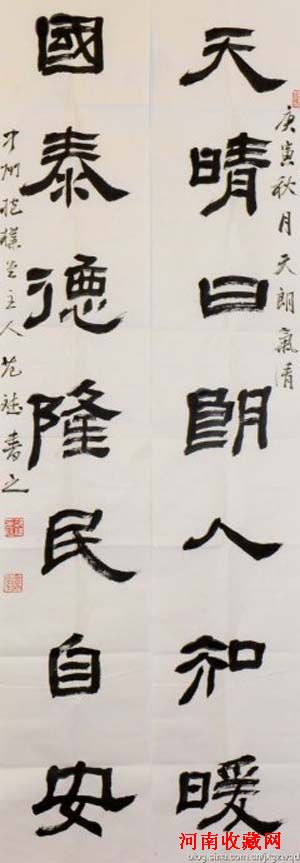 庚寅秋月天朗氣清
天晴日朗人和暖
國泰德隆民自安
主人范
書之
河南收藏网
blog.sina.com.cn/jxgzwgd